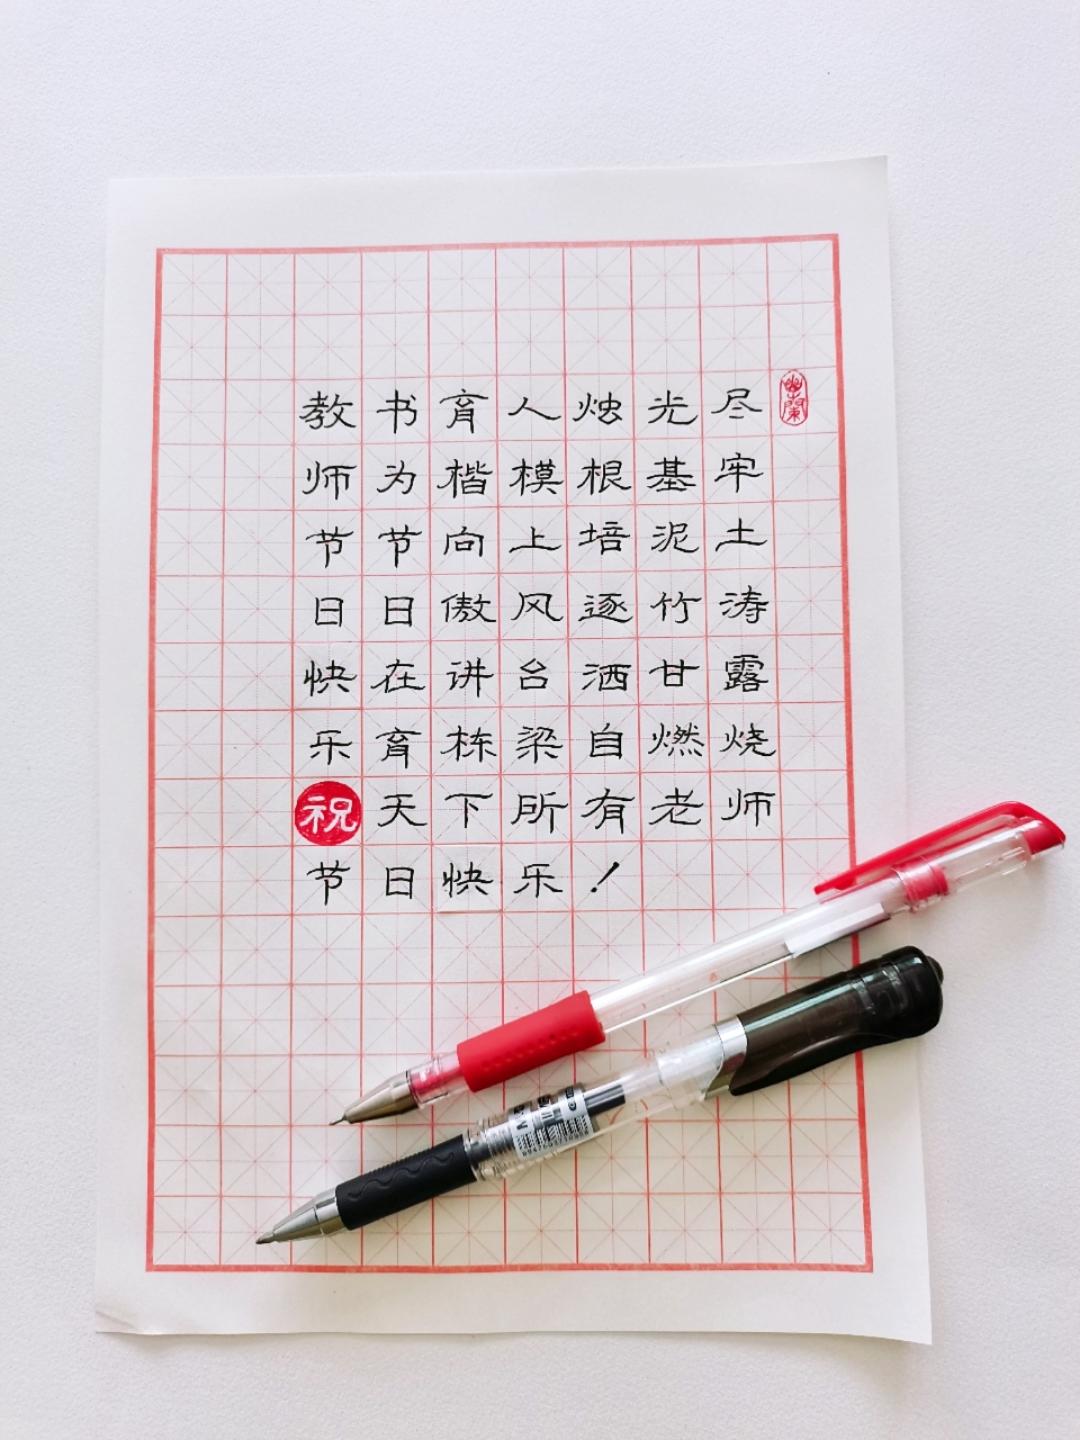 教书育人烛光尽
幽蘭
师为楷模根基牢
节节向上培泥土
日日傲风逐竹涛
快在讲台洒甘露
乐育栋梁自燃烧
祝天下所有老师
节日快乐!